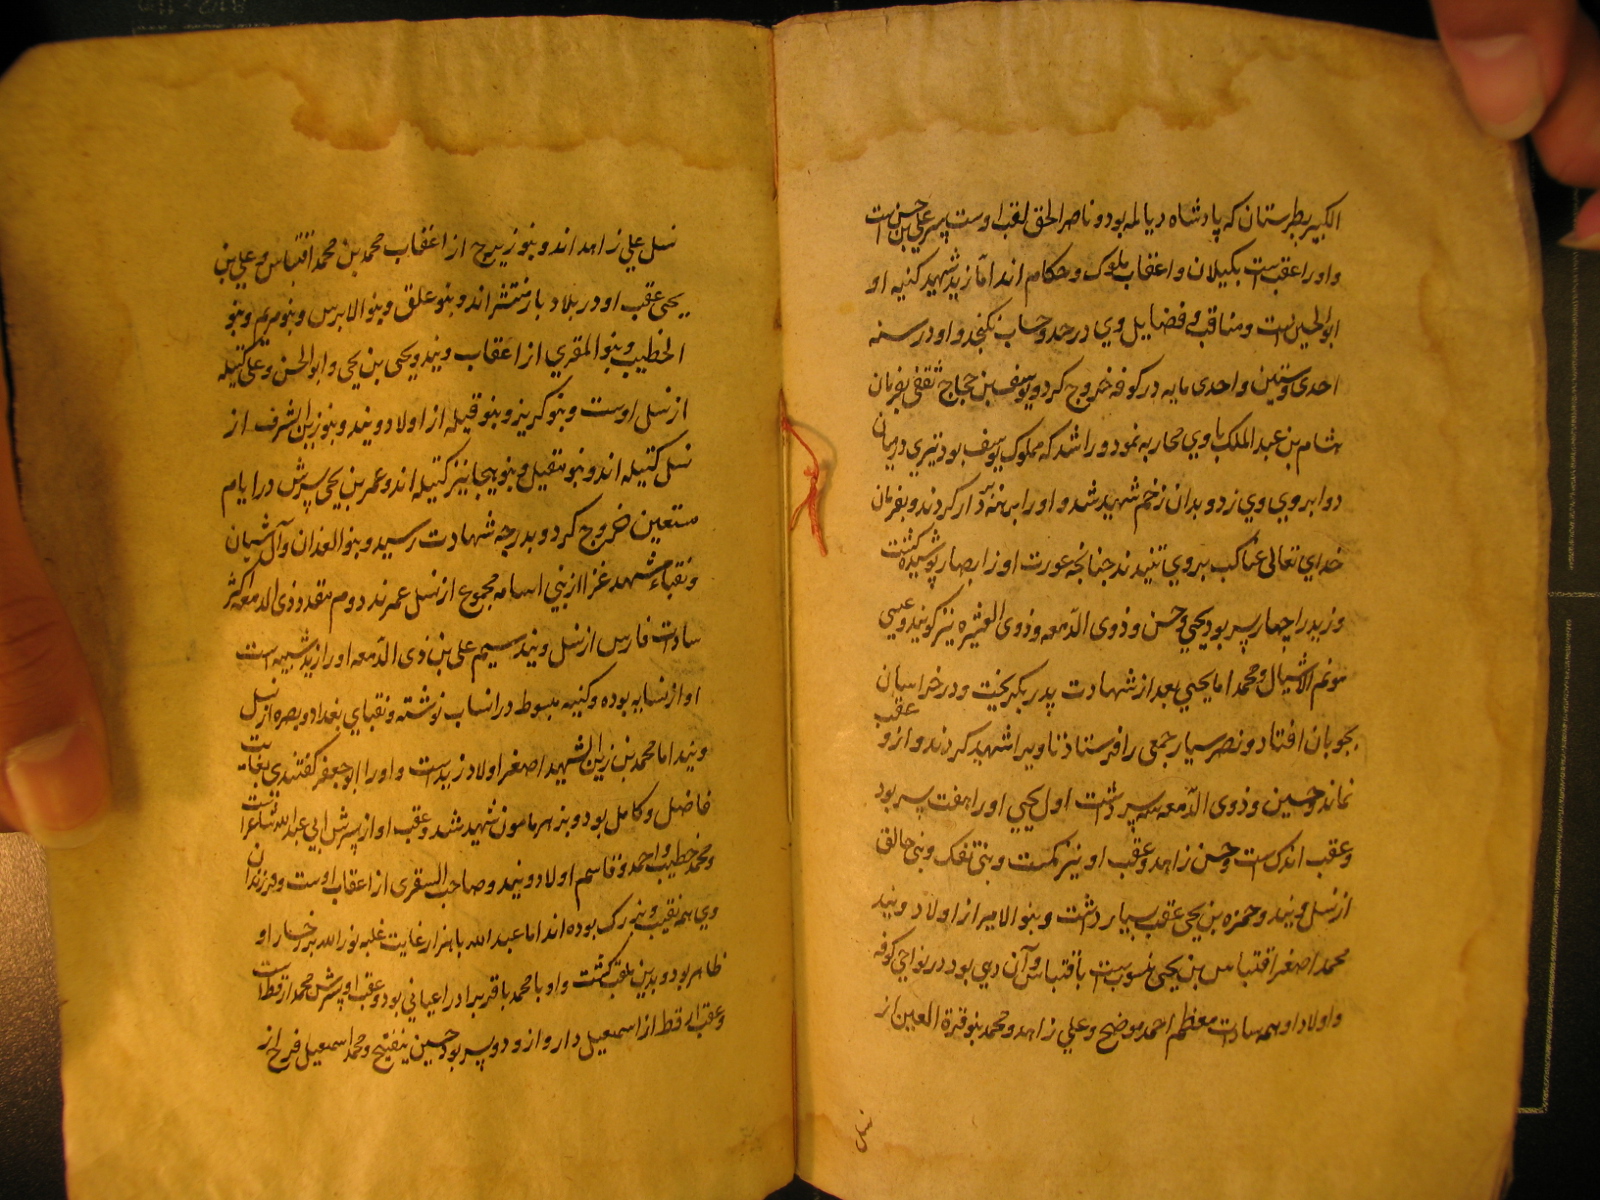 الكبير بطبرستان كه پادشاه ديالمه بود و ناصر الحق لقب اوست پسر علي بن حسن است
و او را عقب است بكيلان و اعقاب ملوك و حكام اند اما زيد شهيد كنيه او
ابو الحسين است و مناقب و فضايل وي در حد و حساب نكنجد و او در سنه
احدى و ستين و احدى مايه در كوفه خروج كرد و يوسف بن حجاج ثقفى بفرمان
هشام بن عبد الملك با وي محاربه نمود و راشد كه مملوك يوسف بود تيري در ميان
دو ابروي وي زد و بدان زخم شهيد شد و او را برهنه بر دار كردند و بفرمان
خداي تعالى عناكب بر وي تنيدند چنانچه عورت او از ابصار پوشيده كشت
و زيد را چهار پسر بود يحيى و حسن و ذوى الدمعه و ذوى العشيره نيز كويند و عيسي
موتم الاشبال و محمد اما يحيي بعد از شهادت پدر بكريخت و در خراسان
بجوبان افتاد و نصر سيار جمعى را فرستاد تا ويرا شهيد كردند و از و عقب
نماند و حسين و ذوى الدمعه سه پسر داشت اول يحيي او را هفت پسر بود
و عقب اندك است و حسن زاهد و عقب او نيز كمست و بنى تفك و بنى خالق
از نسل ويند و حمزه بن يحيى عقب بسيار داشت و بنو الامير از اولاد ويند
محمد اصغر اقتباس بن يحيى منسوبست باقتباس و آن دهى بود در نواحي كوفه
و اولاد او همه سادات معظم احمد موضح و علي زاهد و محمد بنو قرة العين از
نسل
نسل علي زاهد اند و بنو زبرج از اعقاب محمد بن محمد اقتباس و علي بن
يحيى عقب او در بلاد بار منتشر اند و بنو علق و بنو الابرص و بنو مريم و بنو
الخطيب و بنو المقري از اعقاب ويند و يحيى بن يحيى و ابو الحسن و على كتيله
از نسل اوست و بنو كريز و بنو قيله از اولاد ويند و بنو زين الشرف از
نسل كتيله اند و بنو مقبل و بنو هيجا نيز كتيله اند و عمر بن يحيى پسرش در ايام
مستعين خروج كرد و بدرجه شهادت رسيد و بنو العدان و آل شيبان
و نقباء مشهد غرا از بني اسامه مجموع از نسل عمرند دوم مقعد و ذى الدمعه اكثر
سادات فارس از نسل ويند سيم على بن ذى الدمعه او را زيد شبيه است
او از نسابه بوده و كتبه مبسوط در انساب نوشته و نقباي بغداد و بصره از نسل
ويند اما محمد بن زين الشهيد اصغر اولاد زيد ست و او را ابو جعفر كفتندى بغايت
فاضل و كامل بود و بزهر مامون شهيد شد و عقب او از پسرش ابي عبد الله شاعر است
و محمد خطيب و احمد و قاسم اولاد ويند و صاحب السقرى از اعقاب اوست و فرزندان
وي همه نقيب و بزرك بوده اند اما عبد الله باهر از غايت غلبه نور الله بر رخسار او
ظاهر بود و بدين ملقب كشت و او با محمد باقر برادر اعياني بود و عقب او پسرش محمد ارقط است
و عقب ارقط از اسمعيل دار و از و دو پسر بود حسين بنفتيح و محمد اسمعيل فرخ از